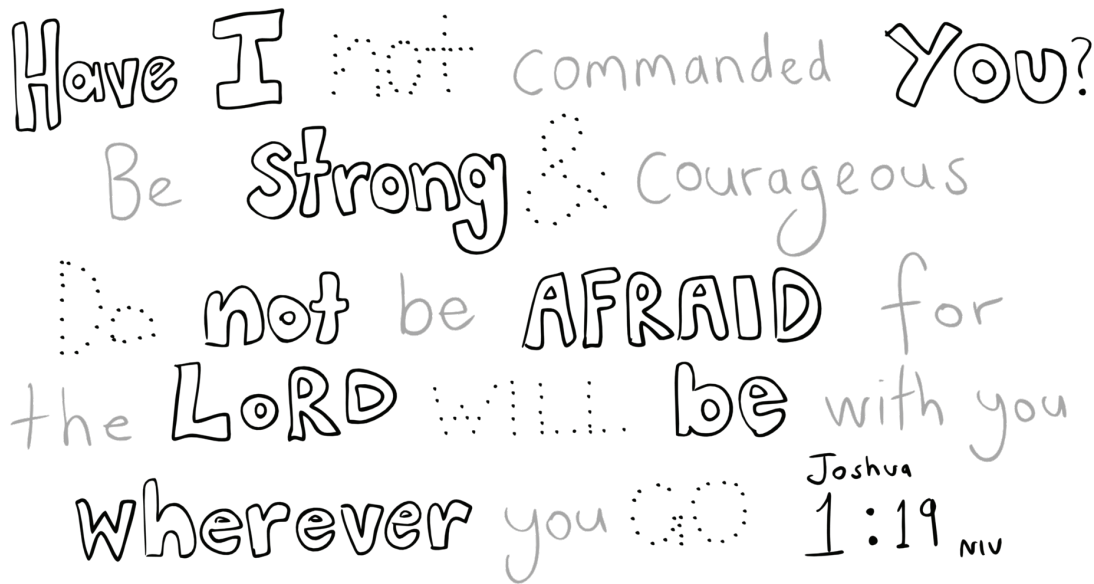 Have I not commanded You?
Be strong & courageous
Do not be AFRAID for
the LORD WILL be with you
wherever you GO
Joshua
1:19 NIV